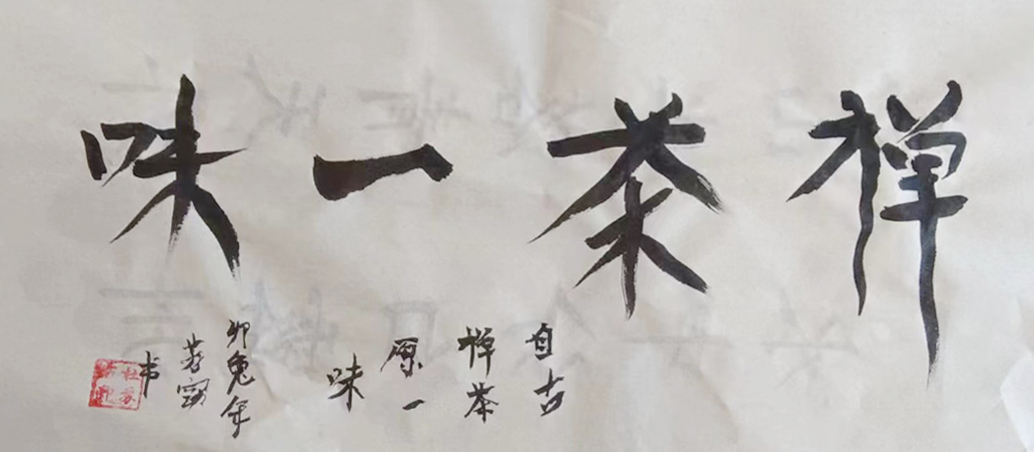 禅茶一味
自古
禅茶
原一
味
卯兔年
书